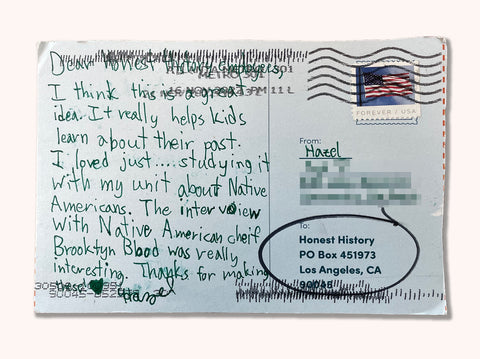 Dear Honest History Employees,
I think this is a great
idea. It really helps kids
learn about their past.
I loved just.... studying it
with my unit about Native
Americans. The interview
with Native American cheif
Brooktyn Blood was really
interesting. Thanks for making
these ♥ Hazel
METRO 901
FOREVER / USA
From:
Hazel
To:
Honest History
PO Box 451973
Los Angeles, CA
90045